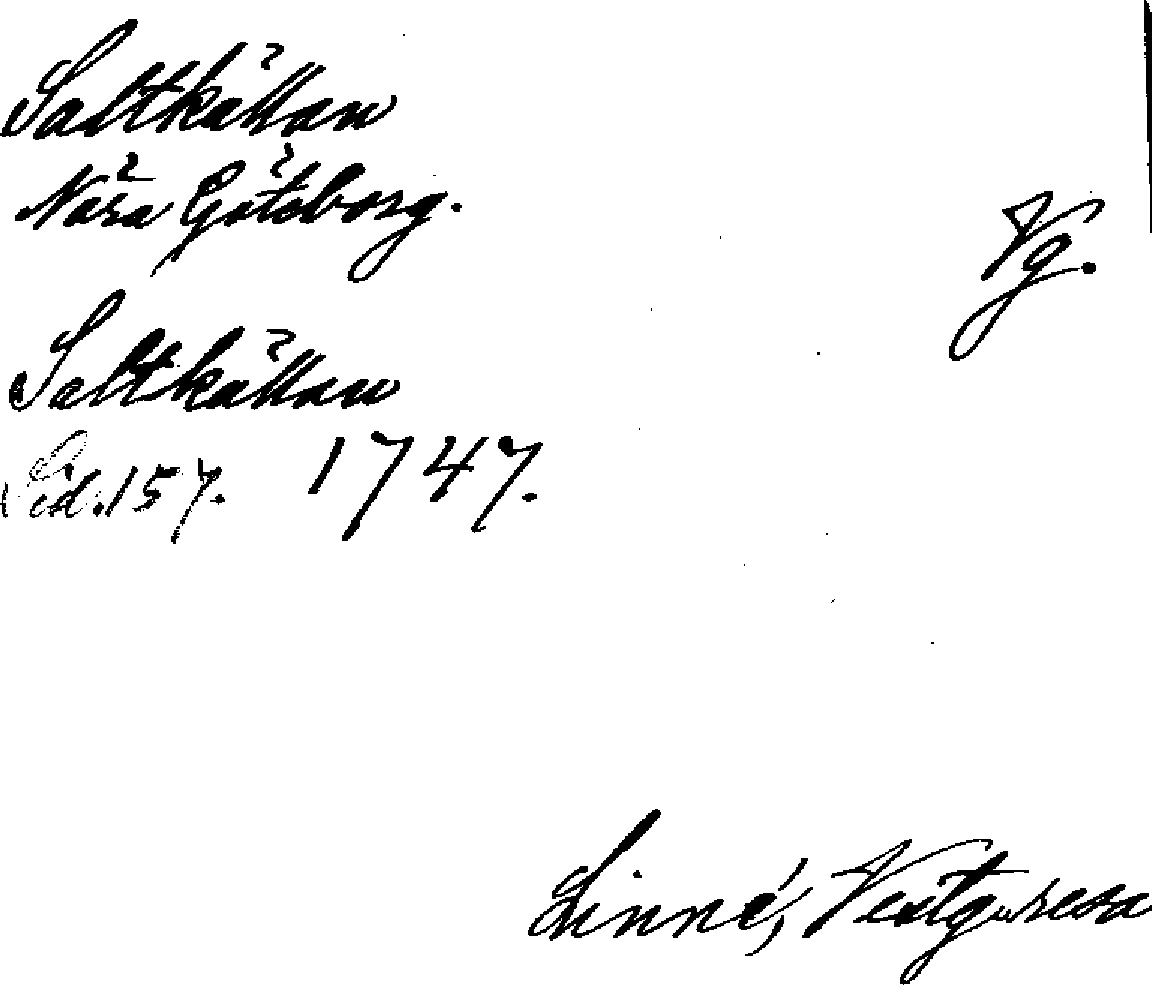 Saltkällan
Nära Göteborg.
Vg.
Saltkällan
Sid. 157. 1747.
Linné, Vestg. resa